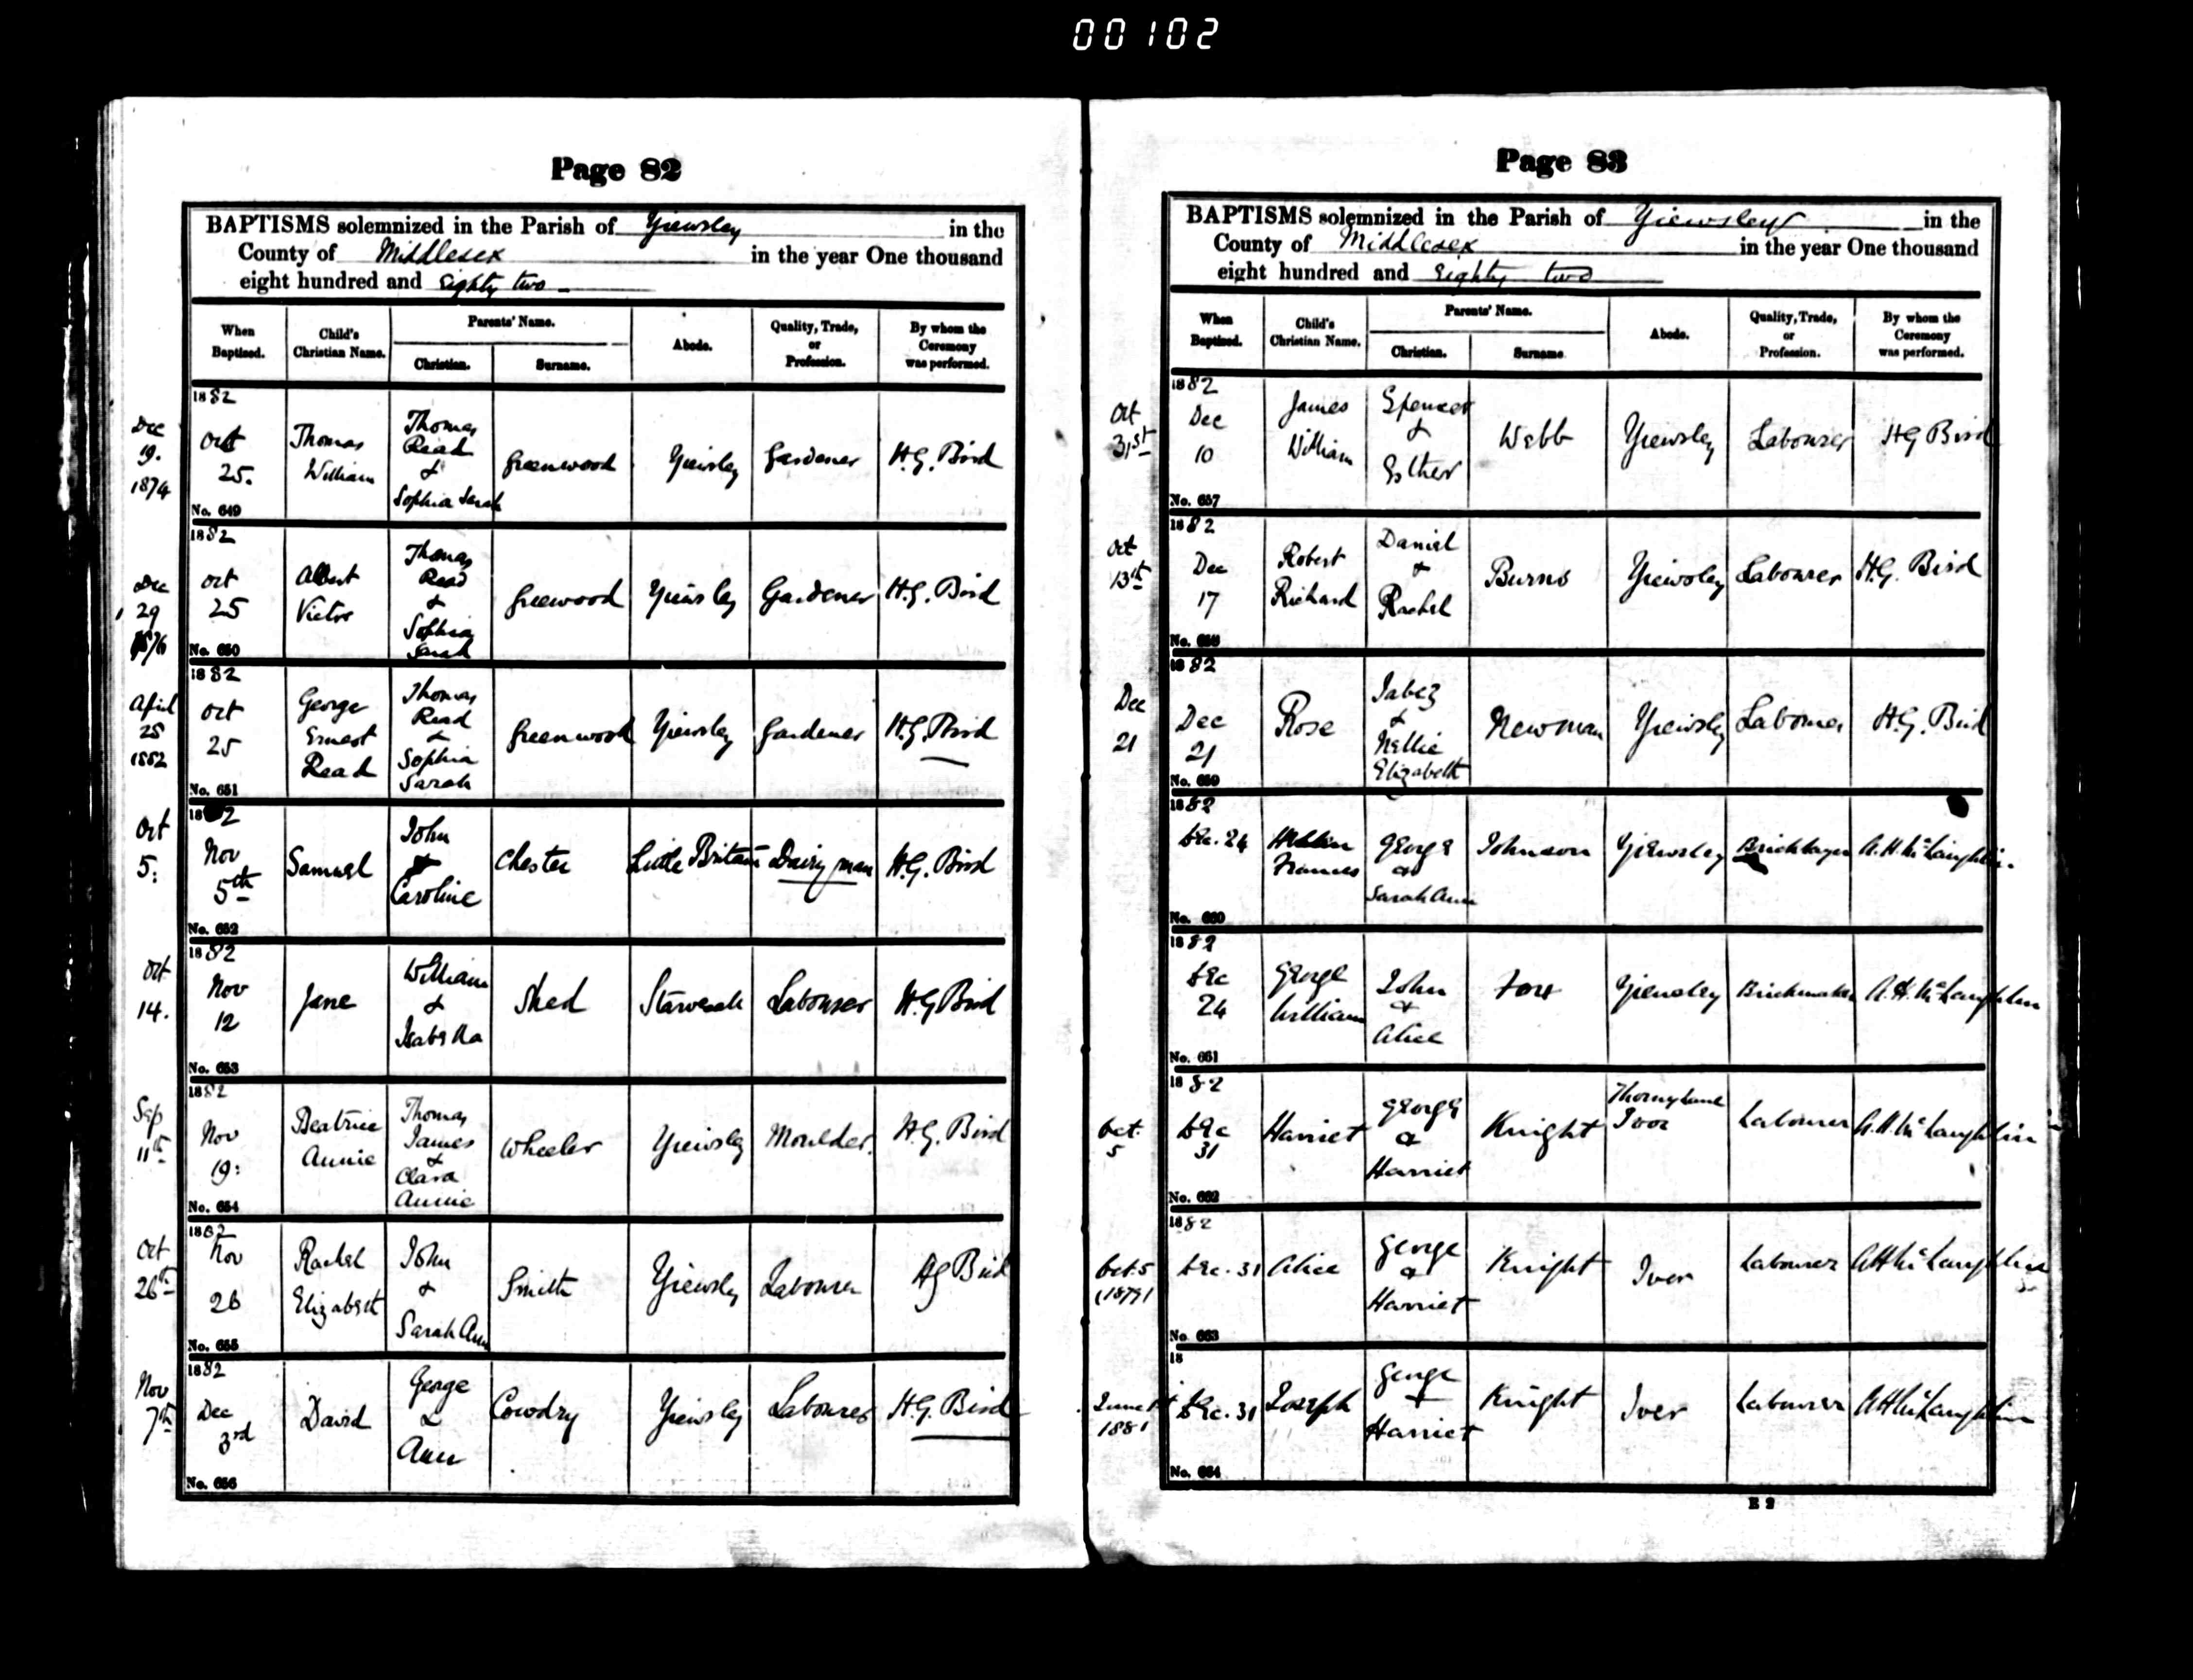 00102
Page 82
BAPTISMS solemnized in the Parish of Yiewsley in the
County of Middlesex in the year One thousand
eight hundred and Eighty two
When Baptized. Child's Christian Name. Parents' Name. Christian. Surname. Abode. Quality, Trade, or Profession. By whom the Ceremony was performed.
Dec 19. 1874 1882 Oct 25. Thomas William Thomas Read & Sophia Sarah Greenwood Yiewsley Gardener H.G. Bird
No. 649
Dec 29 1876 1882 Oct 25 Albert Victor Thomas Read & Sophia Sarah Greewood Yiewsley Gardener H.G. Bird
No. 650
April 25 1882 1882 Oct 25 George Ernest Read Thomas Read & Sophia Sarah Greenwood Yiewsley Gardener H.G. Bird
No. 651
Oct 5: 1882 Nov 5th Samuel John & Caroline Chester Little Britain Dairy man H.G. Bird
No. 652
Oct 14. 1882 Nov 12 Jane William & Isabella Shed Labourer H.G Bird
No. 653
Sep 11th 1882 Nov 19: Beatrice Annie Thomas James & Clara Annie Wheeler Yiewsley Moulder. H.G. Bird
No. 654
Oct 26th 1882 Nov 26 Rachel Elizabeth John & Sarah Ann Smith Yiewsley Labourer HG Bird
No. 655
Nov 7th 1882 Dec 3rd David George & Ann Cowdry Yiewsley Labourer H.G. Bird
No. 656
Page 83
BAPTISMS solemnized in the Parish of Yiewsley in the
County of Middlesex in the year One thousand
eight hundred and Eighty two
When Baptized. Child's Christian Name. Parents' Name. Christian. Surname. Abode. Quality, Trade, or Profession. By whom the Ceremony was performed.
Oct 31st 1882 Dec 10 James William Spencer & Esther Webb Yiewsley Labourer HG Bird
No. 657
Oct 13th 1882 Dec 17 Robert Richard Daniel & Rachel Burns Yiewsley Labourer H.G. Bird
No. 658
Dec 21 1882 Dec 21 Rose Jabez & Nellie Elizabeth Newman Yiewsley Labourer H.G. Bird
No. 659
1882 Dec. 24 Frances George and Sarah Ann Johnson Yiewsley Bricklayer A.H. McLaughlin.
No. 660
1882 Dec 24 George William John & Alice Fox Yiewsley Brickmaker A.H. McLaughlin
No. 661
Oct. 5 1882 Dec 31 Harriet George & Harriet Knight Thorney Lane Iver Labourer A.H. McLaughlin
No. 662
Oct. 5 (1879) 1882 Dec. 31 Alice George & Harriet Knight Iver Labourer AH McLaughlin
No. 663
1881 18 Dec. 31 Joseph George & Harriet Knight Iver Labourer AH McLaughlin
No. 664
E 2